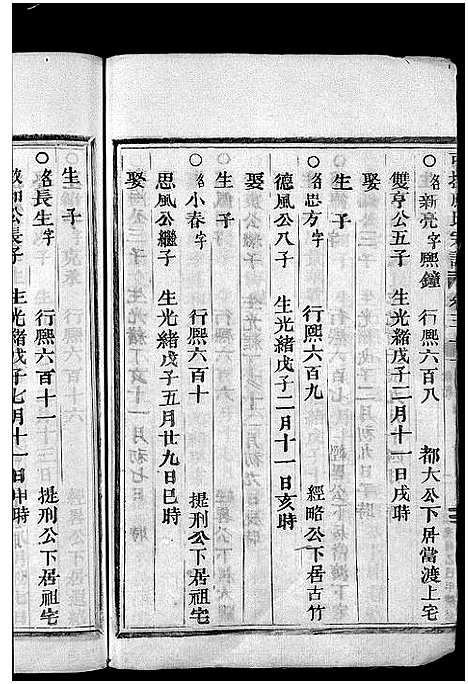 ○諱新亮字熙鐘 行熙六百八 都大公下居當渡上宅
雙亨公五子 生光緒戊子二月十一日戌時
娶
生 子
○諱思方字 行熙六百九 經略公下居古竹
德風公八子 生光緒戊子二月十一日亥時
娶
生 子
○諱小春字 行熙六百十 提刑公下居祖宅
思風公繼子 生光緒戊子五月廿九日巳時
娶
生 子
○諱長生字 行熙六百十一 提刑公下居祖宅
公長子 生光緒戊子七月十一日申時